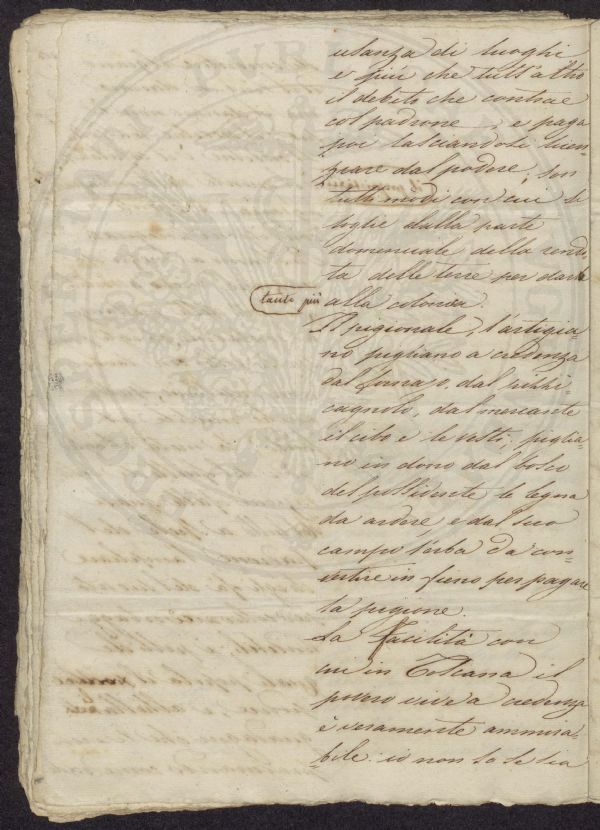 usanza di luoghi
e più che tutt'altro
il debito che contrae
col padrone, e paga
poi lasciandosi licen-
ziare dal podere; son
tutti modi con cui si
toglie dalla parte
domenicale della rendi-
ta delle terre per darne
alla colonica.
tanto più
Il pigionale, l'artigia-
no pigliano a credenza
dal fornajo, dal pizzi-
cagnolo, dal mercante
il cibo e le vesti; piglia-
no in dono dal bosco
del possidente le legna
da ardere, e dal suo
campo l'erba da con-
vertire in fieno per pagare
la pigione.
La facilità con
cui in Toscana il
povero vive a credenza
è veramente ammira-
bile: io non so se sia